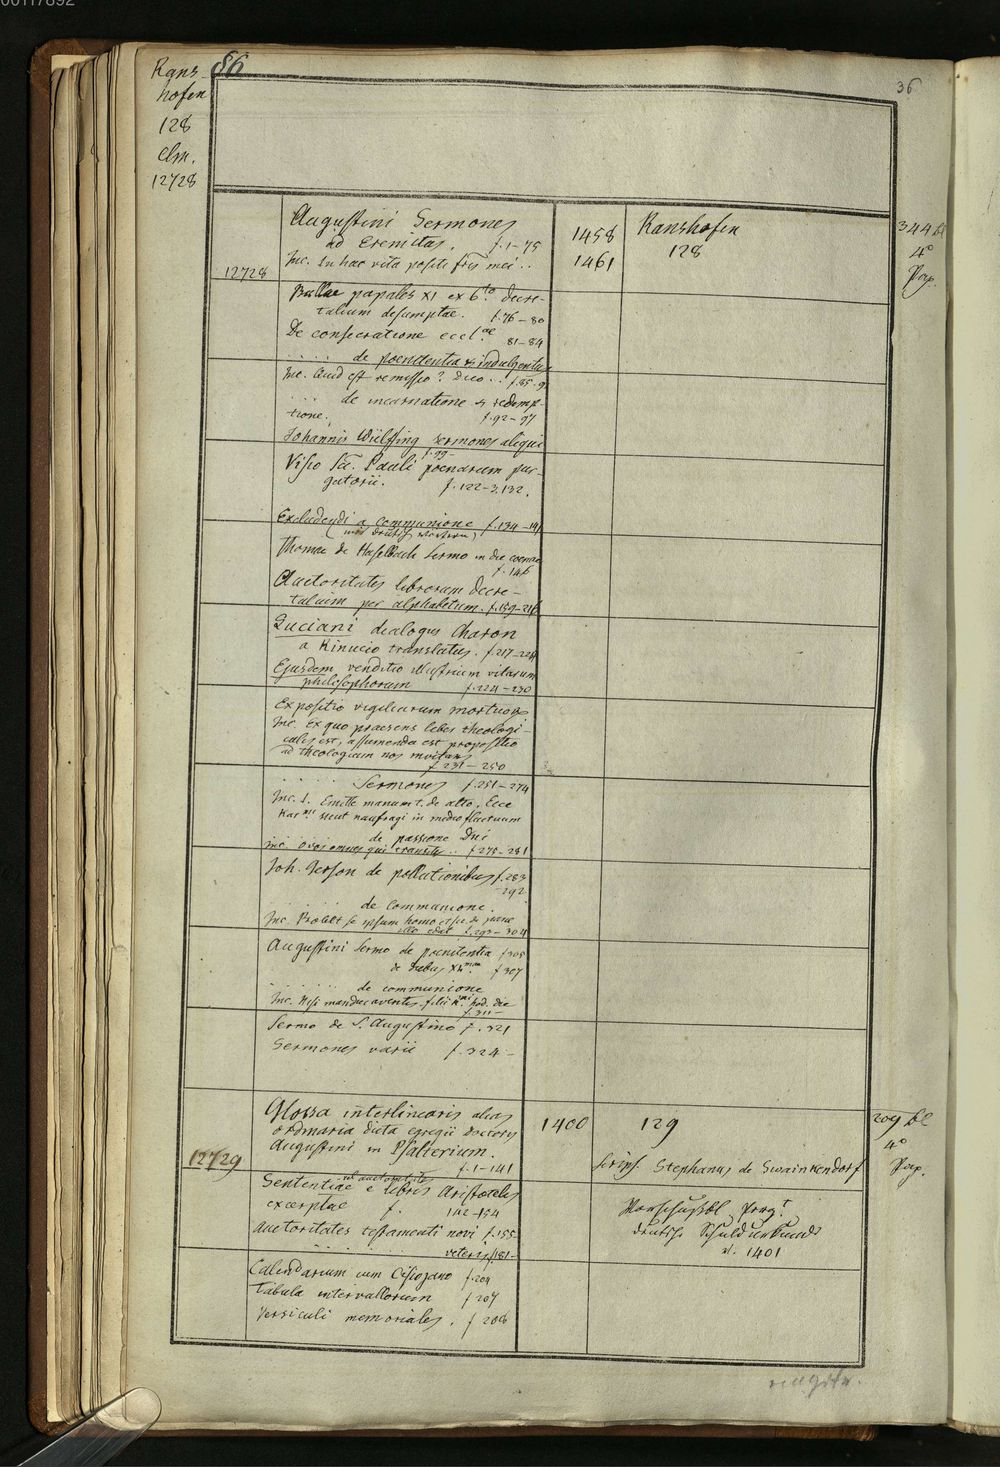 00117892
Rans-
hofen
128
clm.
12728
86
36
Augustini Sermones
ad Eremitas. f. 1-75
Inc. In hac vita positi frs mei ..
12728
1458
1461
Ranshofen
128
344 bl
4°
Pap.
Bullae papales XI ex 6.to decre-
talium desumptae. f. 76-80
De consecratione eccl.ae 81-84
..... de poenitentia & indulgentiis
Inc. Quid est remissio? Dico .. f. 85-9
... de incarnatione & redemp-
tione. f. 92-97
Johannis Wülffing sermones aliqui
f. 99-
Visio Sci. Pauli poenarum pur-
gatorii. f. 122-3. 132.
Excludendi a communione f. 134-141
Thomae de Haselbach Sermo in die coenae
f. 146
Auctoritates librorum Decre-
talium per alphabetum. f. 159-216
Luciani dialogus Charon
a Rinucio translatus. f. 217-224
Ejusdem venditio illustrium vitarum
philosophorum f. 224-230
Expositio vigiliarum mortuor.
Inc. Ex quo praesens liber theologi-
calis est, assumenda est propositio
ad theologiam nos invitans
f. 231-250
..... Sermones f. 251-274
Inc. 1. Emitte manum t. de alto. Ecce
Kar.mi sicut naufragi in medio fluctuum
de passione Dni
Inc. O vos omnes qui transitis .. f. 275-281
Joh. Gerson de pollutionibus f. 283
-292
..... de communione.
Inc. Probet se ipsum homo et sic de pane
illo edat f. 293-304
Augustini Sermo de poenitentia f 305
f 307
...... de communione
Inc. Nisi manducaveritis
f. 311-
Sermo de S. Augustino f. 321
Sermones varii f. 324-
Glossa interlinearis alias
ordinaria dicta egregii doctoris
Augustini in Psalterium.
f. 1-141
12729
1400
129
Script. Stephanus de Swainkendorf
209 bl
4°
Pap.
vel auctoritates
Sententiae e libris Aristotelis
excerptae f. 142-154
Auctoritates testamenti novi f. 155-
..... veteris f. 181-
Vorschußbl. Perg.t
deutsche Schuldurkunde
v. 1401
Calendarium cum Cisiojano f. 204
Tabula intervallorum f 207
Versiculi memoriales. f 208